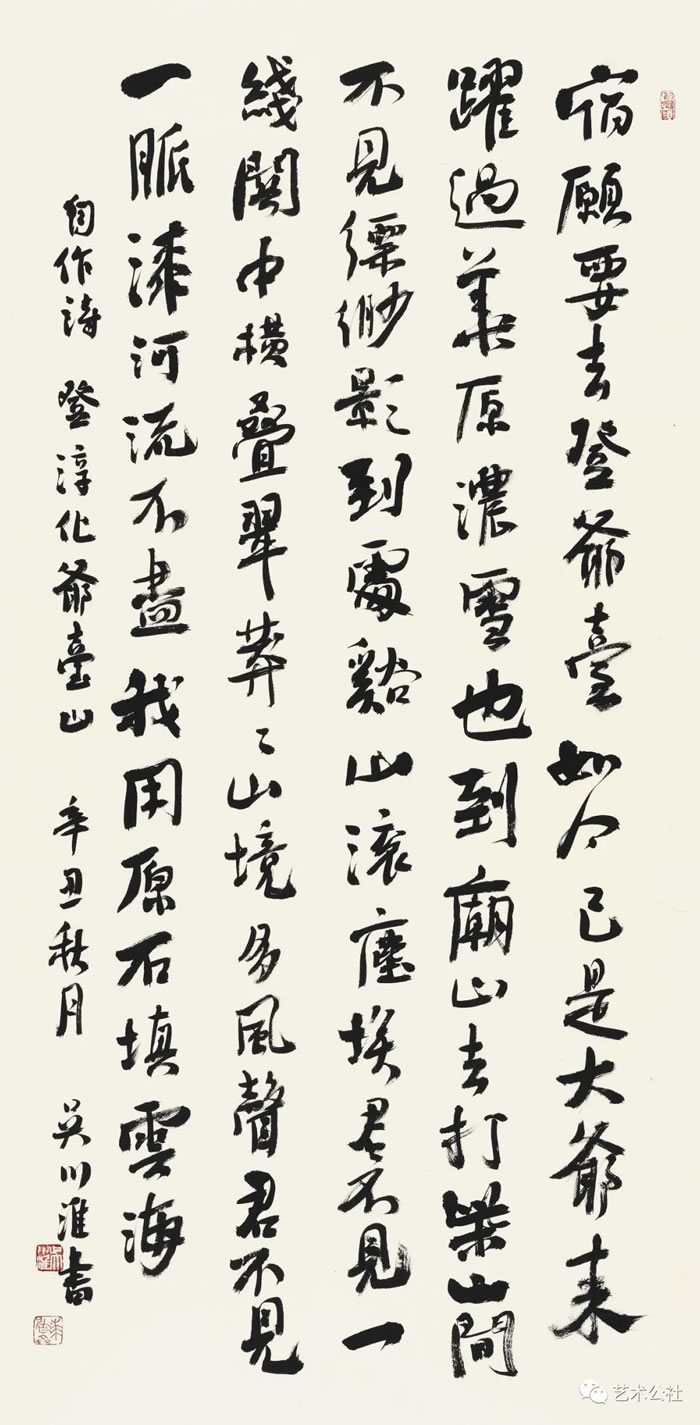 宿願要去登爺臺如今已是大爺来
躍過原濃雪也到廟山去打柴山間
不見縹緲影到處谿山滾塵埃君不見一
綫關中橫疊翠莽〻山境多風聲君不見
一脈漆河流不盡我用原石填雲海
自作詩 登淳化爺臺山 辛丑秋月 吴川淮書
艺术公社